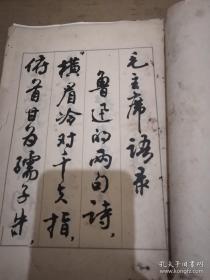 毛主席语录
鲁迅的两句诗，
横眉冷对千夫指，
俯首甘为孺子牛，